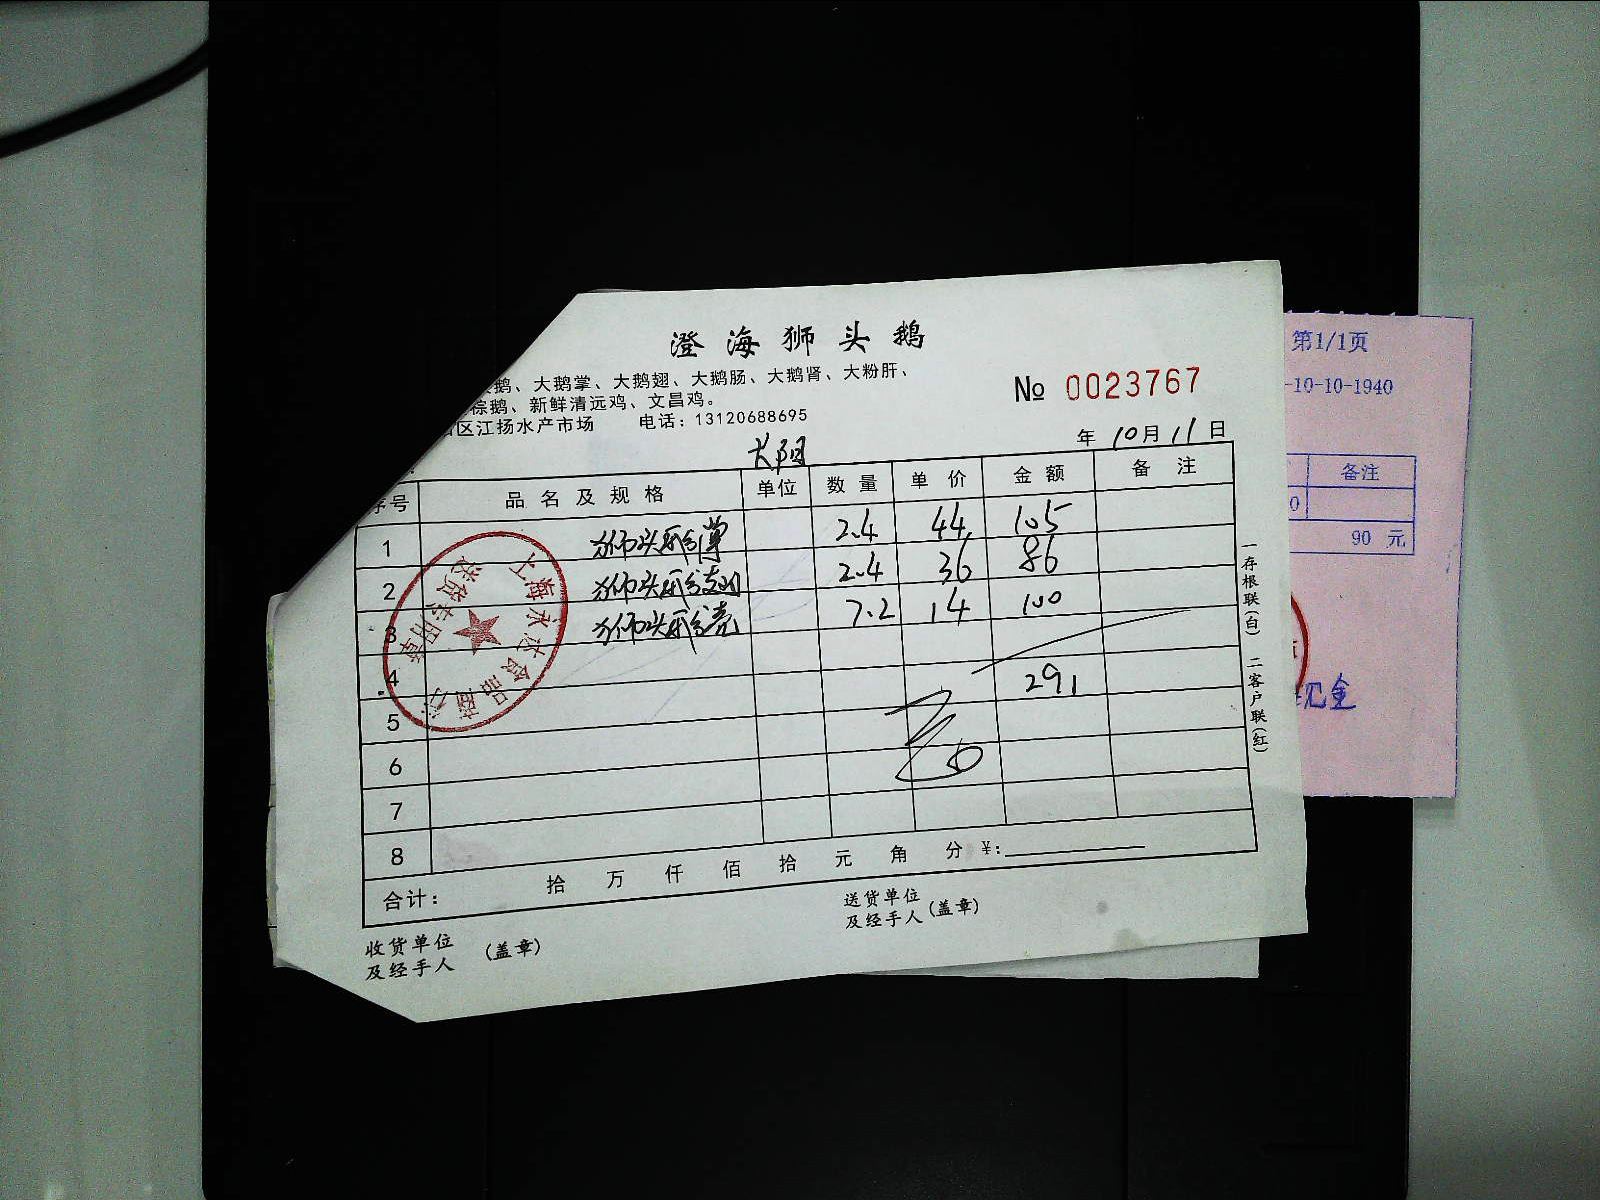 澄海狮头鹅
鹅、大鹅掌、大鹅翅、大鹅肠、大鹅肾、大粉肝、
棕鹅、新鲜清远鸡、文昌鸡。
区江扬水产市场 电话：13120688695
№ 0023767
年 10 月 11 日
序号 品名及规格 单位 数量 单价 金额 备注
1 狮头鹅掌 2.4 44 105
2 狮头鹅翅 2.4 36 86
3 狮头鹅 7.2 14 100
4 291
5
6
7
8
合计： 拾 万 仟 佰 拾 元 角 分 ¥：
收货单位及经手人（盖章）
送货单位及经手人（盖章）
一存根联（白） 二客户联（红）
上海永达食品商行
送货专用章
第1/1页
-10-10-1940
备注
0
90 元
现金